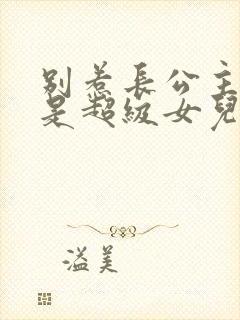 別惹長公主
是超級女兒
溢美